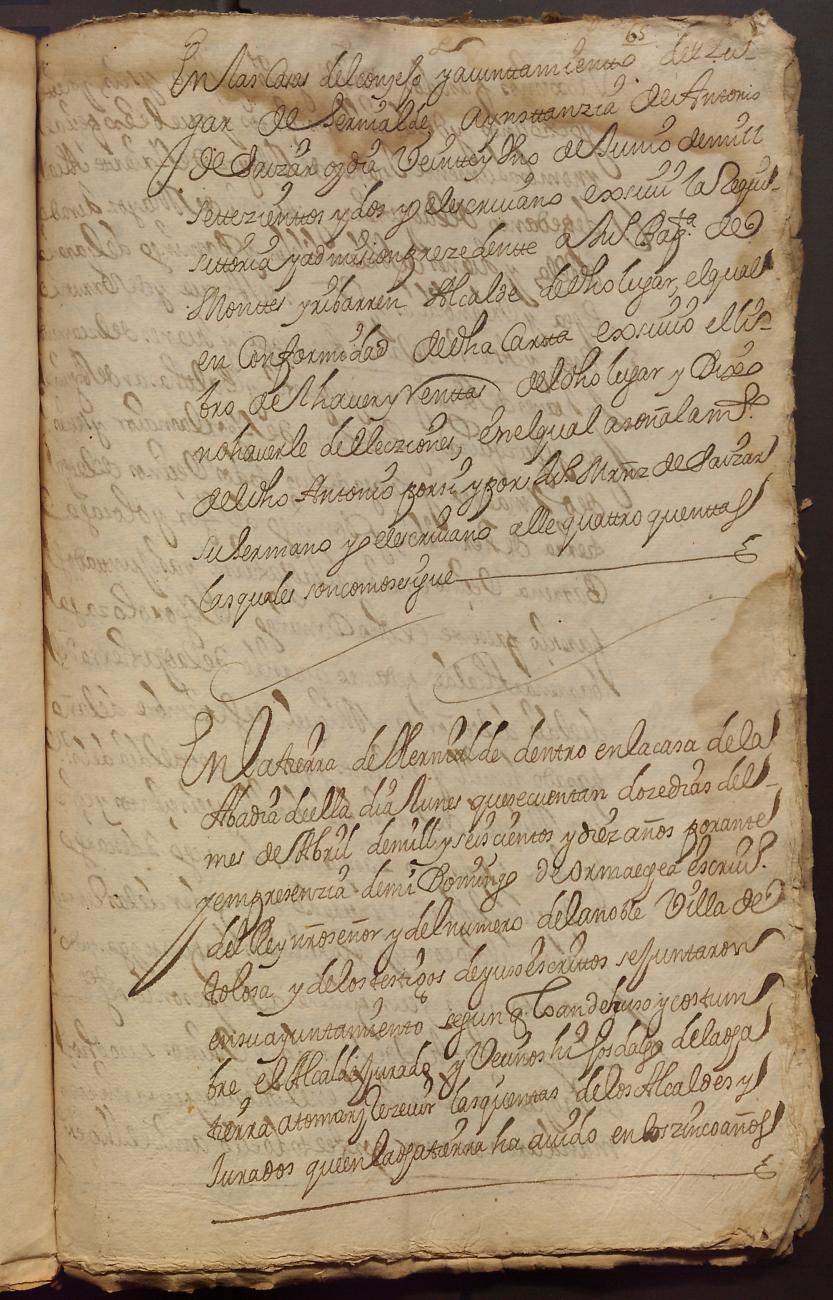 65
En las Casas del conzejo y aiunttamientto del Lu-
gar de Hernialde, a ynsttanzia de Antonio
de Saizar oy dia Veintte y Uno de Junio de mill
settezienttos y dos yo el escriuano exsiui la Requi-
sittoria y admision prezedentte a Ju.º Bap.ta de
Monttes y ribarren Alcalde de dho lugar, el qual
en Conformidad de dha Cartta exsiuio el li-
bro de Thauer y Renttas del dho lugar y Dixo
no hauerle de Elecziones, en el qual a señalam.to
del dho Antonio por si y por Ju.º Mrñz de Saizar
su hermano yo el escriuano alle quattro quenttas
las quales son como se sigue
En la tierra de Hernialde dentro en la casa de la
Abadia de ella dia Lunes que se cuentan doze dias del
mes de Abril de mill y seis cientos y diez años por ante
y en presenzia de mi Domingo de Ormaegea escriu.º
del Rey nro señor y del numero de la noble Villa de
Tolosa, y de los testigos de yuso escrittos se Juntaron
en su ayuntamiento segun q. lo an de huso y costum
bre el Alcalde Jurado y Vecinos hijosdalgo de la dha
tierra a tomar y Rezeuir las quentas de los Alcaldes y
Jurados que en la dha tierra ha auido en los zinco años